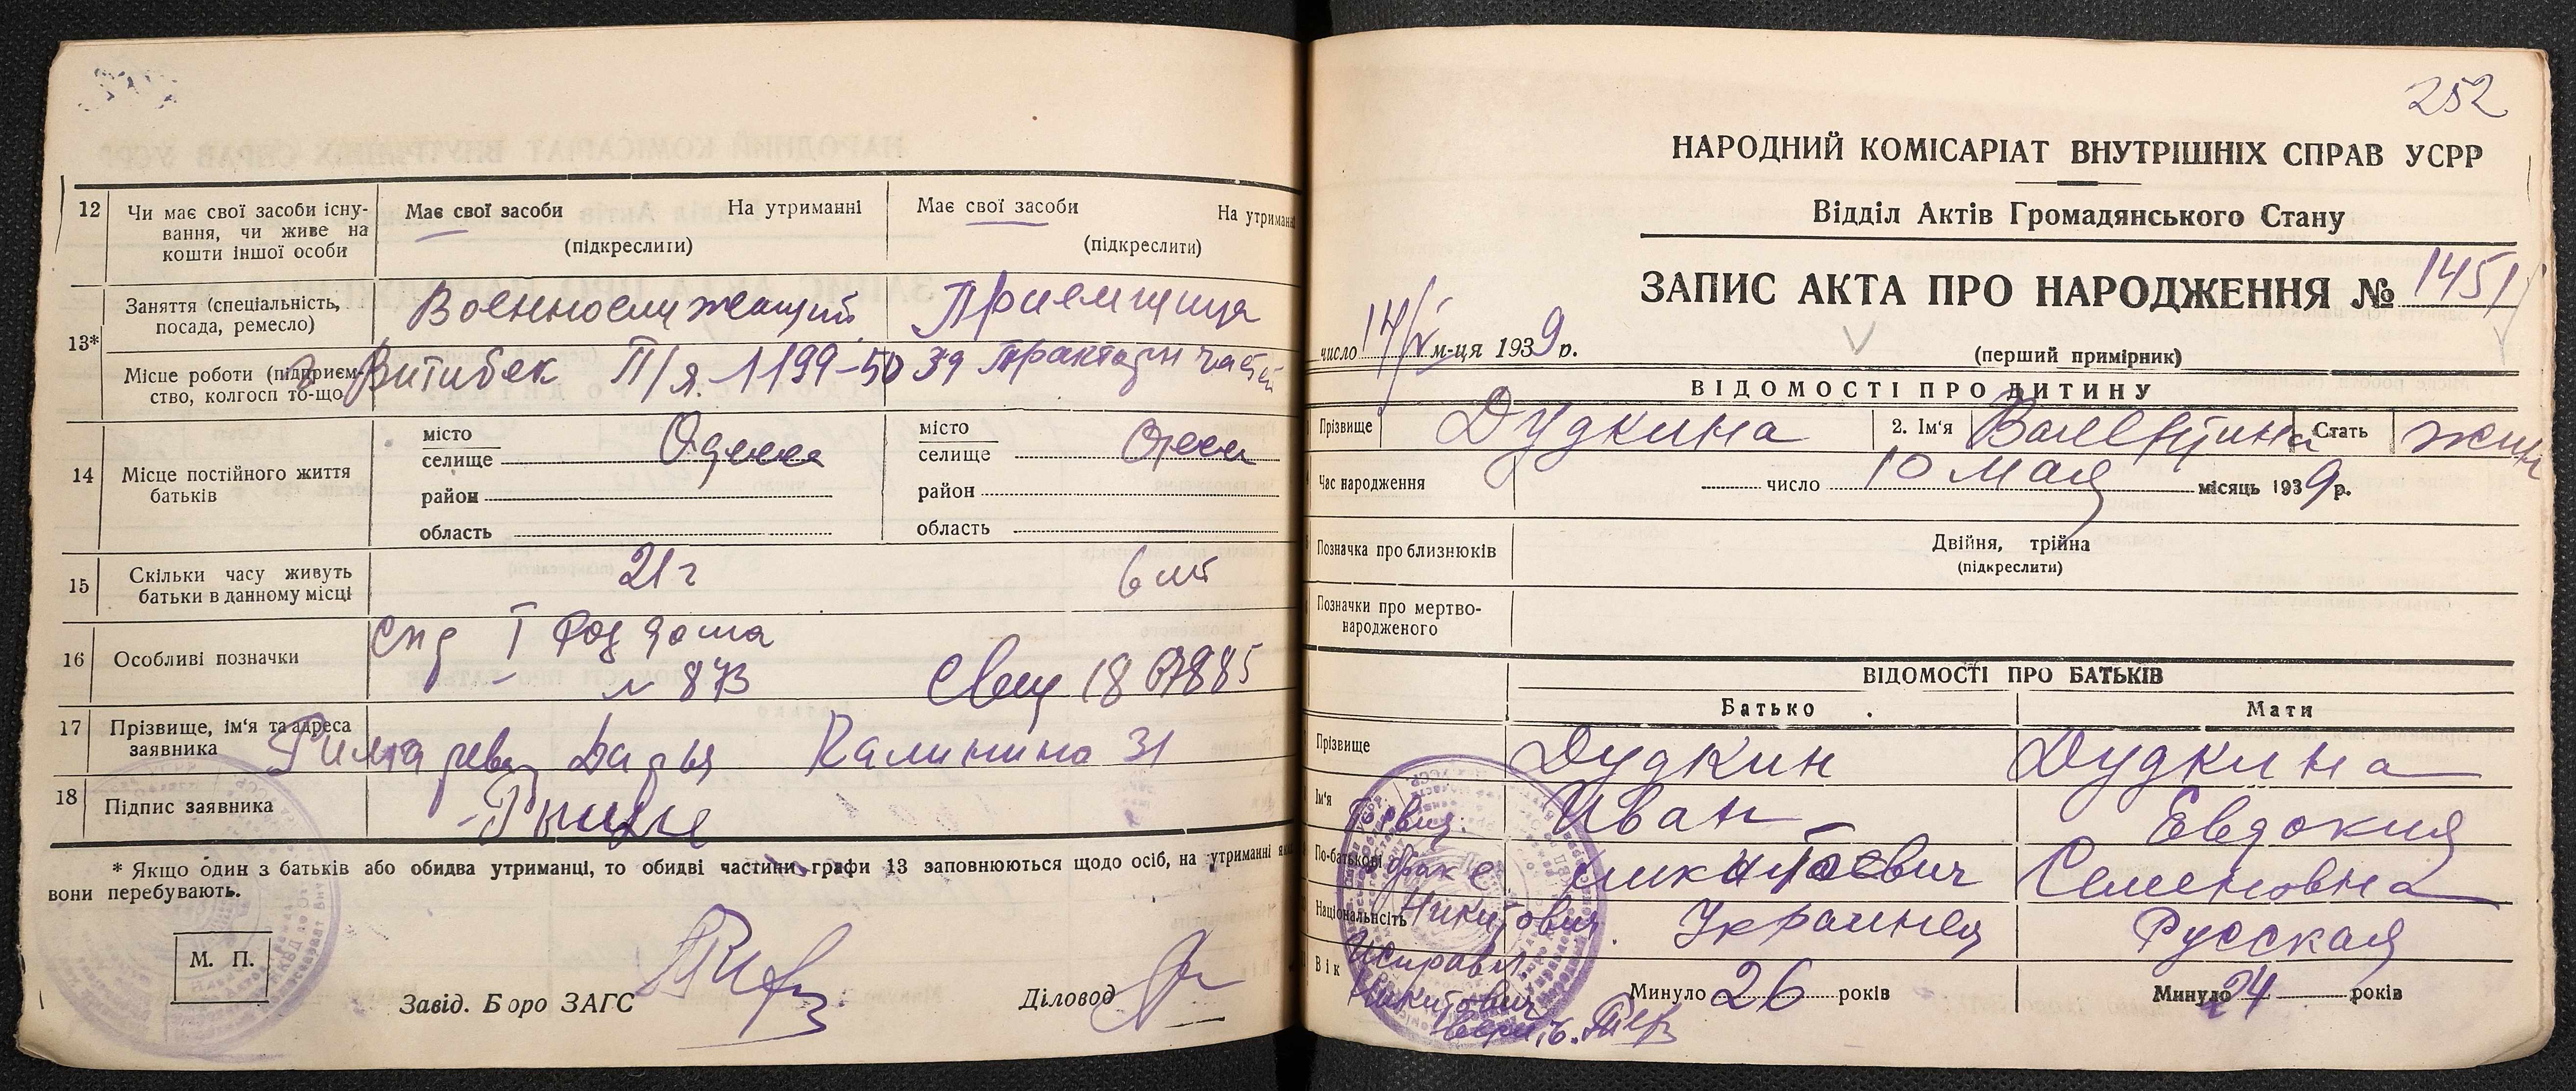 12 Чи має свої засоби існу-
вання, чи живе на
кошти іншої особи
Має свої засоби На утриманні
(підкреслити)
Має свої засоби На утриманні
(підкреслити)
13*
Заняття (спеціальність,
посада, ремесло)
Военнослужащий Приемщица
Місце роботи (підприєм-
ство, колгосп то-що
П/я. 1199-50 39
14 Місце постійного життя
батьків
місто
селище Одесса
район
область
місто
селище Одесса
район
область
15 Скільки часу живуть
батьки в данному місці
21 г 6 лет
16 Особливі позначки
Спр Род дома
№ 873
17 Прізвище, ім'я та адреса
заявника
Дарья Калинина 31
18 Підпис заявника
* Якщо один з батьків або обидва утриманці, то обидві частини графи 13 заповнюються щодо осіб, на утриманні як
вони перебувають.
М. П.
Завід. Бюро ЗАГС
Діловод
252
НАРОДНИЙ КОМІСАРІАТ ВНУТРІШНІХ СПРАВ УСРР
Відділ Актів Громадянського Стану
ЗАПИС АКТА ПРО НАРОДЖЕННЯ № 1451
число 14/V м-ця 1939 р.
(перший примірник)
ВІДОМОСТІ ПРО ДИТИНУ
Прізвище Дудкина 2. Ім'я Валентина Стать жин
Час народження число 10 мая місяць 1939 р.
Позначка про близнюків Двійня, трійна
(підкреслити)
Позначки про мертво-
народженого
ВІДОМОСТІ ПРО БАТЬКІВ
Батько Мати
Прізвище Дудкин Дудкина
Ім'я Иван Евдокия
По-батькові Никитович Семеновна
Національність Украинец Русская
Вік Минуло 26 років Минуло 24 років
в графе
Никитович
Исправл
Никитович
верить.